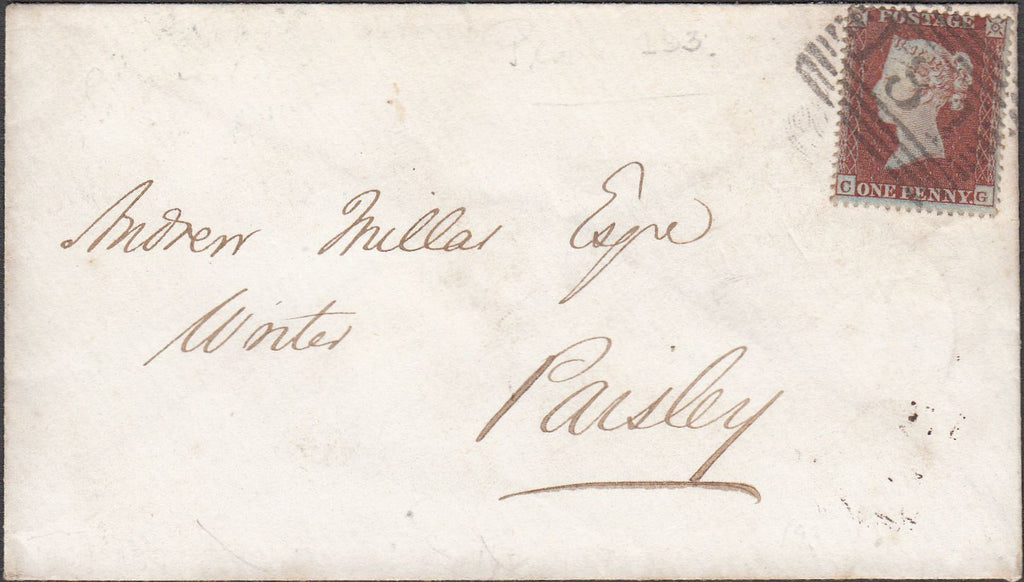 193.
POSTAGE
C ONE PENNY. G
Andrew Millar Esqre
Writer
Paisley